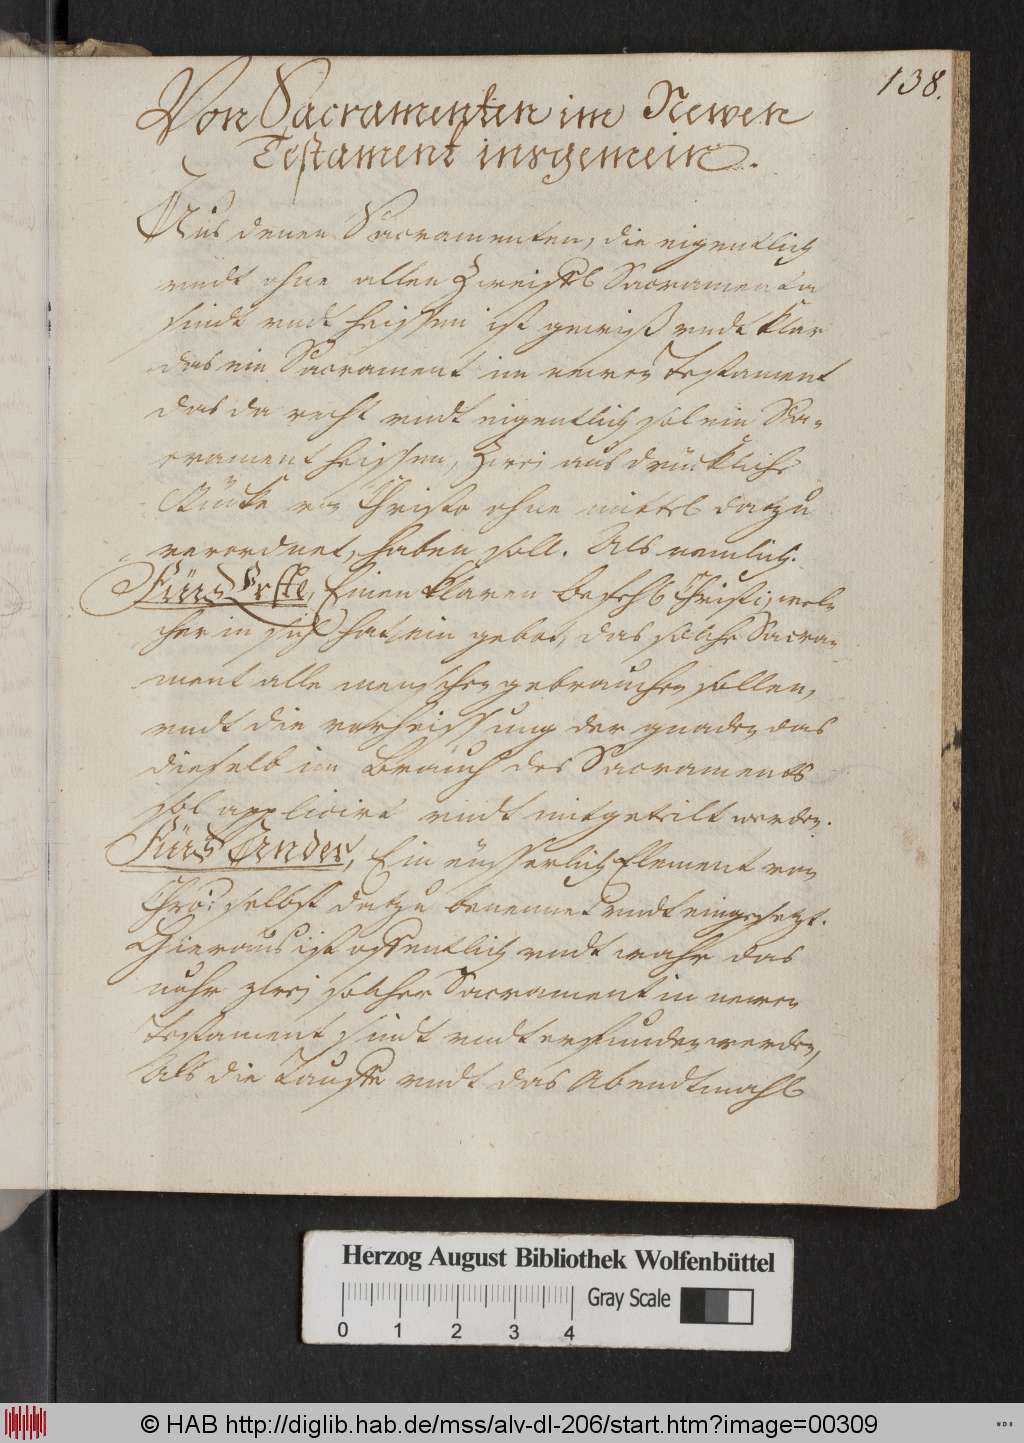 138.
Von Sacramenten im Newen
Testament insgemein.
Aus denen Sacramenten, die eigentlich
undt ohne allen Zweiffel Sacramenta
sindt undt heissen ist gewiß undt klar
das ein Sacrament im newen Testament
das da recht undt eigentlich sol ein Sa-
crament heissen, zwei ausdrückliche
Stücke von Christo ohne mittel dazu
verordnet, haben soll. Als nemlich.
Fürs Erste, Einen klaren befehl Christi, wel-
cher in sich hat ein gebot, das solche Sacra-
ment alle menschen gebrauchen sollen,
undt die verheissung der gnaden das
dieselb im Brauch des Sacraments
sol applicirt undt mitgeteilt werden.
Fürs Ander, Ein eüsserlich Element von
Chro: selbst datzu benennet undt eingesetzt.
Hieraus ist offentlich undt wahr das
nuhr zwei solcher Sacrament in newen
Testament sindt undt erfunden werden,
Als die Tauffe undt das Abendtmahl
Herzog August Bibliothek Wolfenbüttel
Gray Scale
0 1 2 3 4
© HAB http://diglib.hab.de/mss/alv-dl-206/start.htm?image=00309